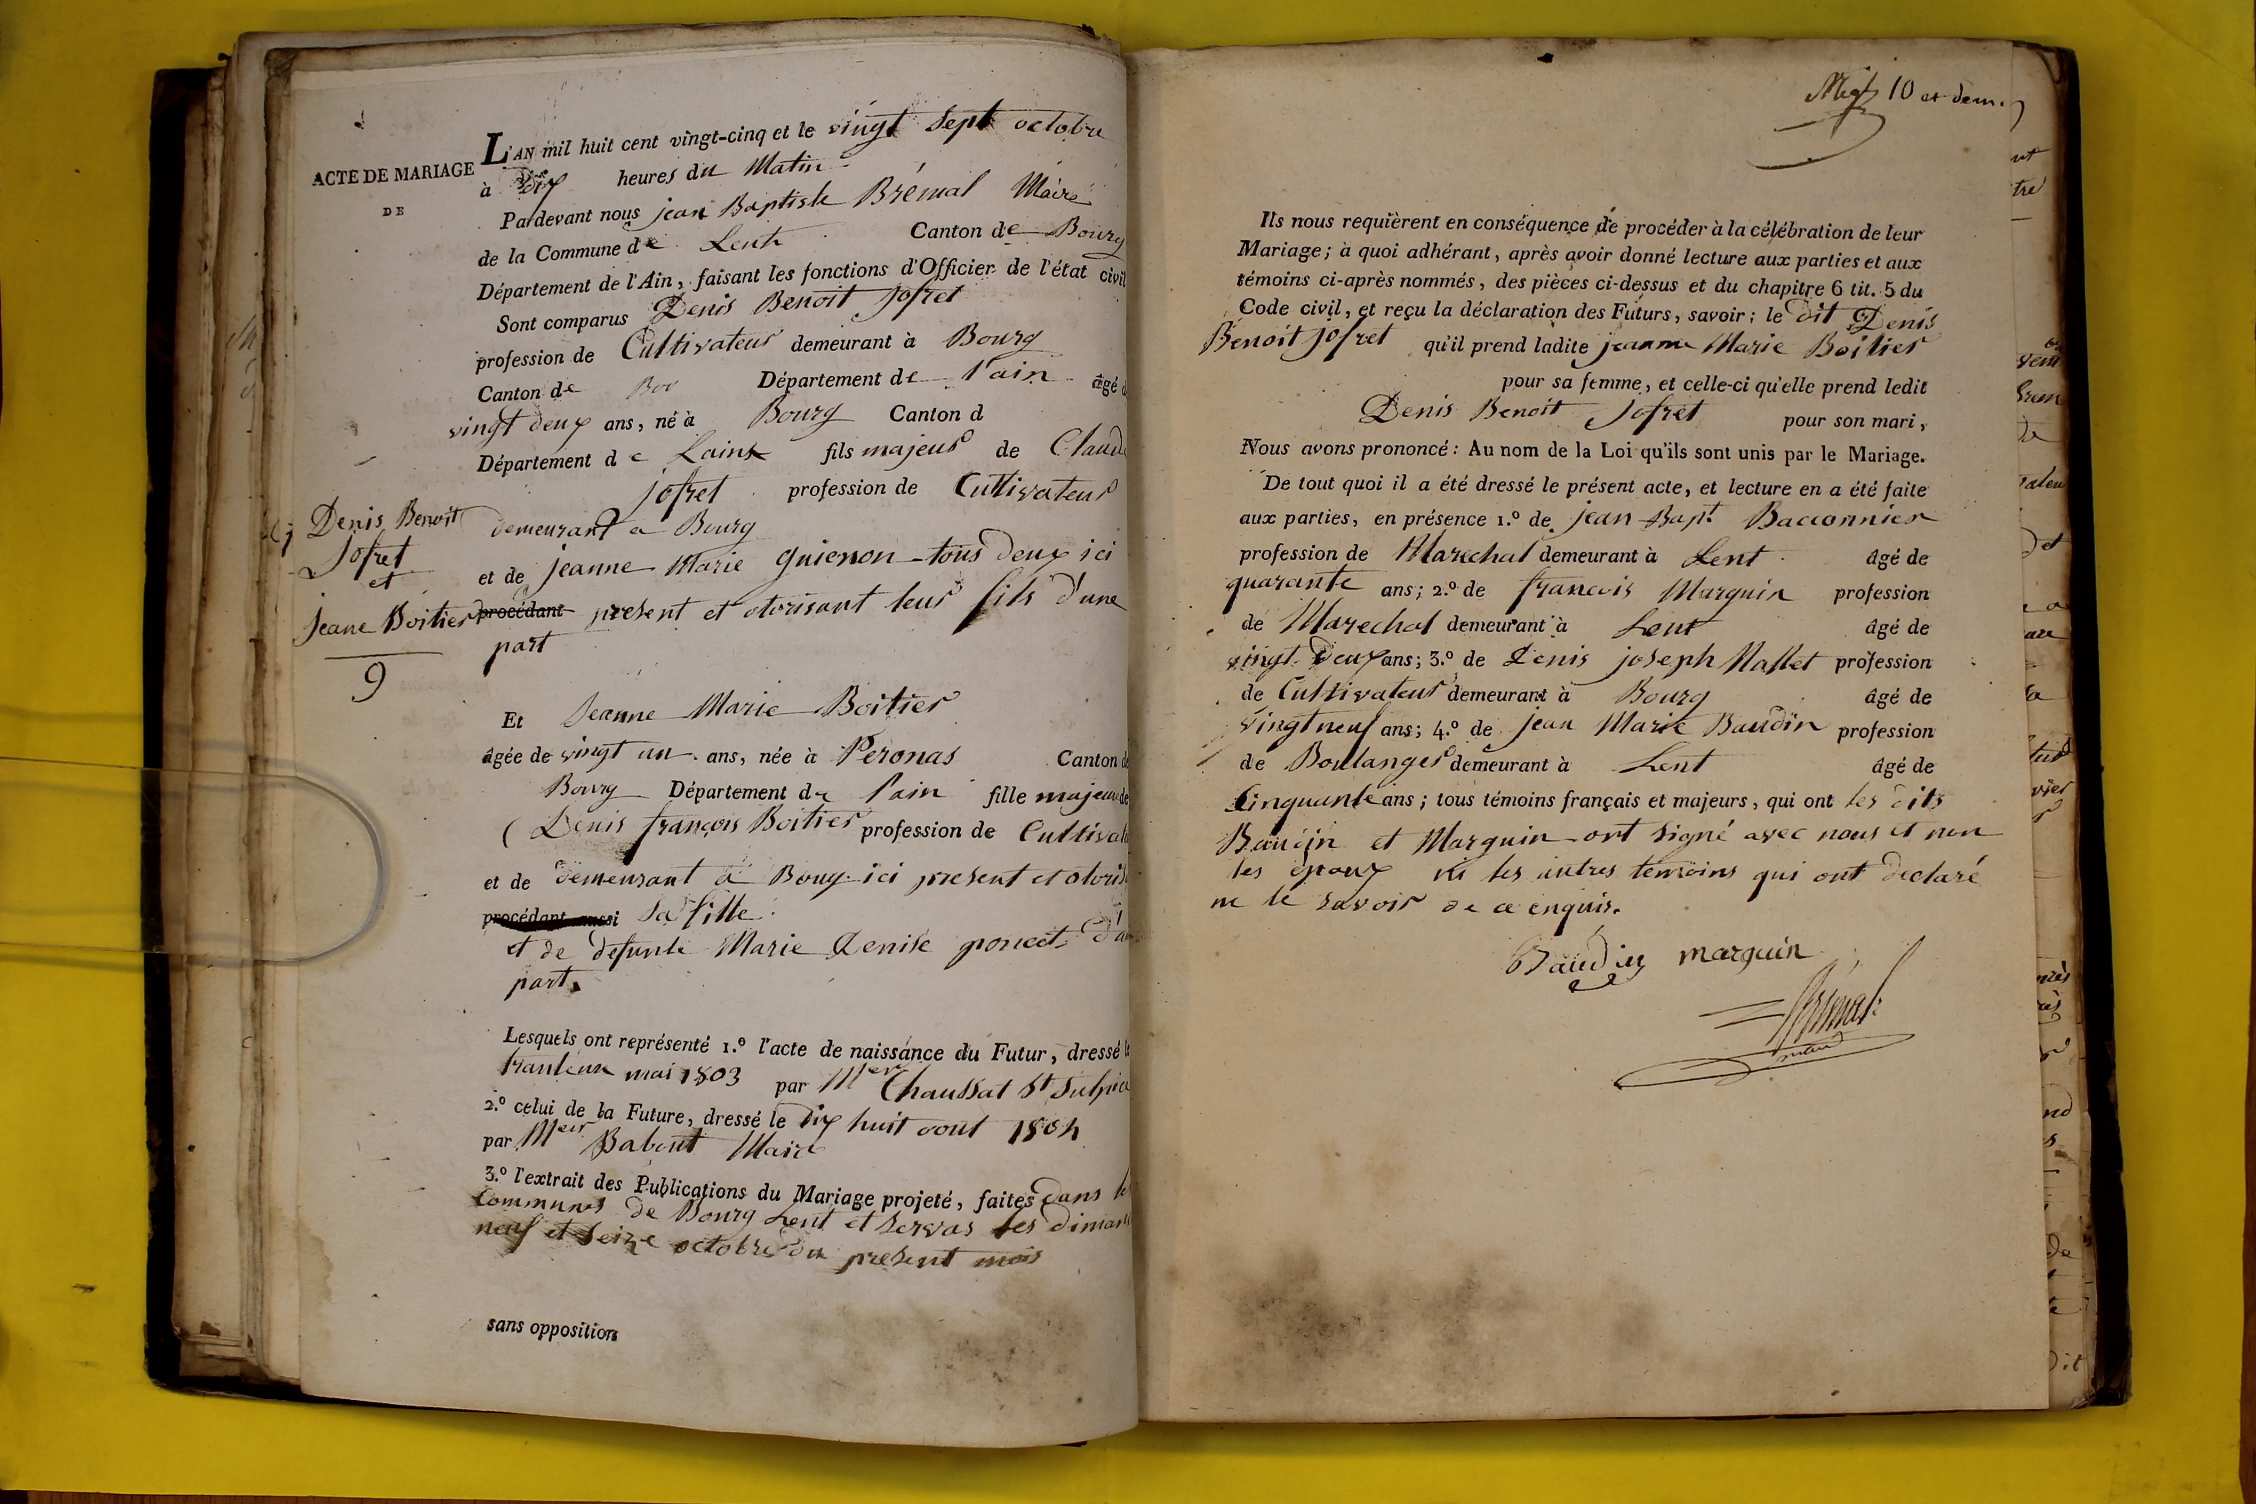 ACTE DE MARIAGE
DE
Denis Benoit
Jofret
et
Jeane Boitier
9
L'AN mil huit cent vingt-cinq et le vingt sept octobre
à Dix heures du Matin
Pardevant nous jean Baptiste Brémal Maire
de la Commune de Lent Canton de Bourg
Département de l'Ain, faisant les fonctions d'Officier de l'état civil
Sont comparus Denis Benoit Jofret
profession de Cultivateur demeurant à Bourg
Canton de Département de l'ain âgé d
vingt deux ans, né à Bourg Canton d
Département de Lain fils majeur de Claude
jofret profession de Cultivateur
demeurant a Bourg
et de jeanne Marie guienon tous deux ici
procédant present et otorisant leur fils d'une
part
Et Jeanne Marie Boitier
âgée de vingt un ans, née à Peronas Canton de
Bourg Département de l'ain fille majeure de
Denis françois Boitier profession de Cultivat
et de demeurant a Boug ici present et otoris
procédant aussi sa fille
et de defunte Marie Denise poncet d'a
part.
Lesquels ont représenté 1.º l'acte de naissance du Futur, dressé le
trante un mai 1803 par Mer Chaussat St Sulpice
2.º celui de la Future, dressé le Dix huit aout 1804
par Meir Babout Maire
3.º l'extrait des Publications du Mariage projeté, faites dans le
Communes de Bourg Lent et Servas les dimanc
neuf et seize octobre du present mois
sans opposition
10 et dem.
Ils nous requièrent en conséquence de procéder à la célébration de leur
Mariage; à quoi adhérant, après avoir donné lecture aux parties et aux
témoins ci-après nommés, des pièces ci-dessus et du chapitre 6 tit. 5 du
Code civil, et reçu la déclaration des Futurs, savoir; le dit Denis
Benoit jofret qu'il prend ladite jeanne Marie Boitier
pour sa femme, et celle-ci qu'elle prend ledit
Denis Benoit Jofret pour son mari,
Nous avons prononcé: Au nom de la Loi qu'ils sont unis par le Mariage.
De tout quoi il a été dressé le présent acte, et lecture en a été faite
aux parties, en présence 1.º de jean Bapt. Bacconnier
profession de Marechal demeurant à Lent âgé de
quarante ans; 2.º de francois Marguin profession
de Marechal demeurant à Lent âgé de
vingt deux ans; 3.º de Denis joseph Mallet profession
de Cultivateur demeurant à Bourg âgé de
vingt neuf ans; 4.º de jean Marie Baudin profession
de Boulanger demeurant à Lent âgé de
Cinquante ans; tous témoins français et majeurs, qui ont les dits
Baudin et Marguin ont signé avec nous et non
les époux ni les autres temoins qui ont declaré
ne le savoir de ce enquis.
Baudin marguin
Brémal